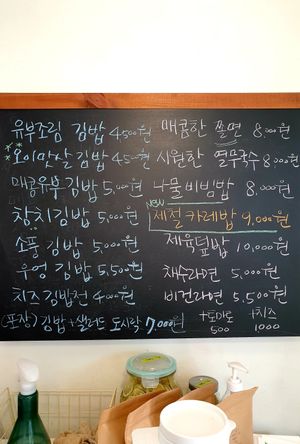 유부조림 김밥 4,500원
오이맛살 김밥 4,500원
매콤유부 김밥 5,000원
참치김밥 5,000원
소풍 김밥 5,000원
우엉 김밥 5,500원
치즈김밥전 4,000원
(포장) 김밥 + 샐러드 도시락 7,000원
매콤한 쫄면 8,000원
시원한 열무국수 8,000원
나물비빔밥 8,000원
NEW
제철 카레밥 9,000원
제육덮밥 10,000원
채수라면 5,000원
비건라면 5,500원
+토마토 500
+치즈 1000